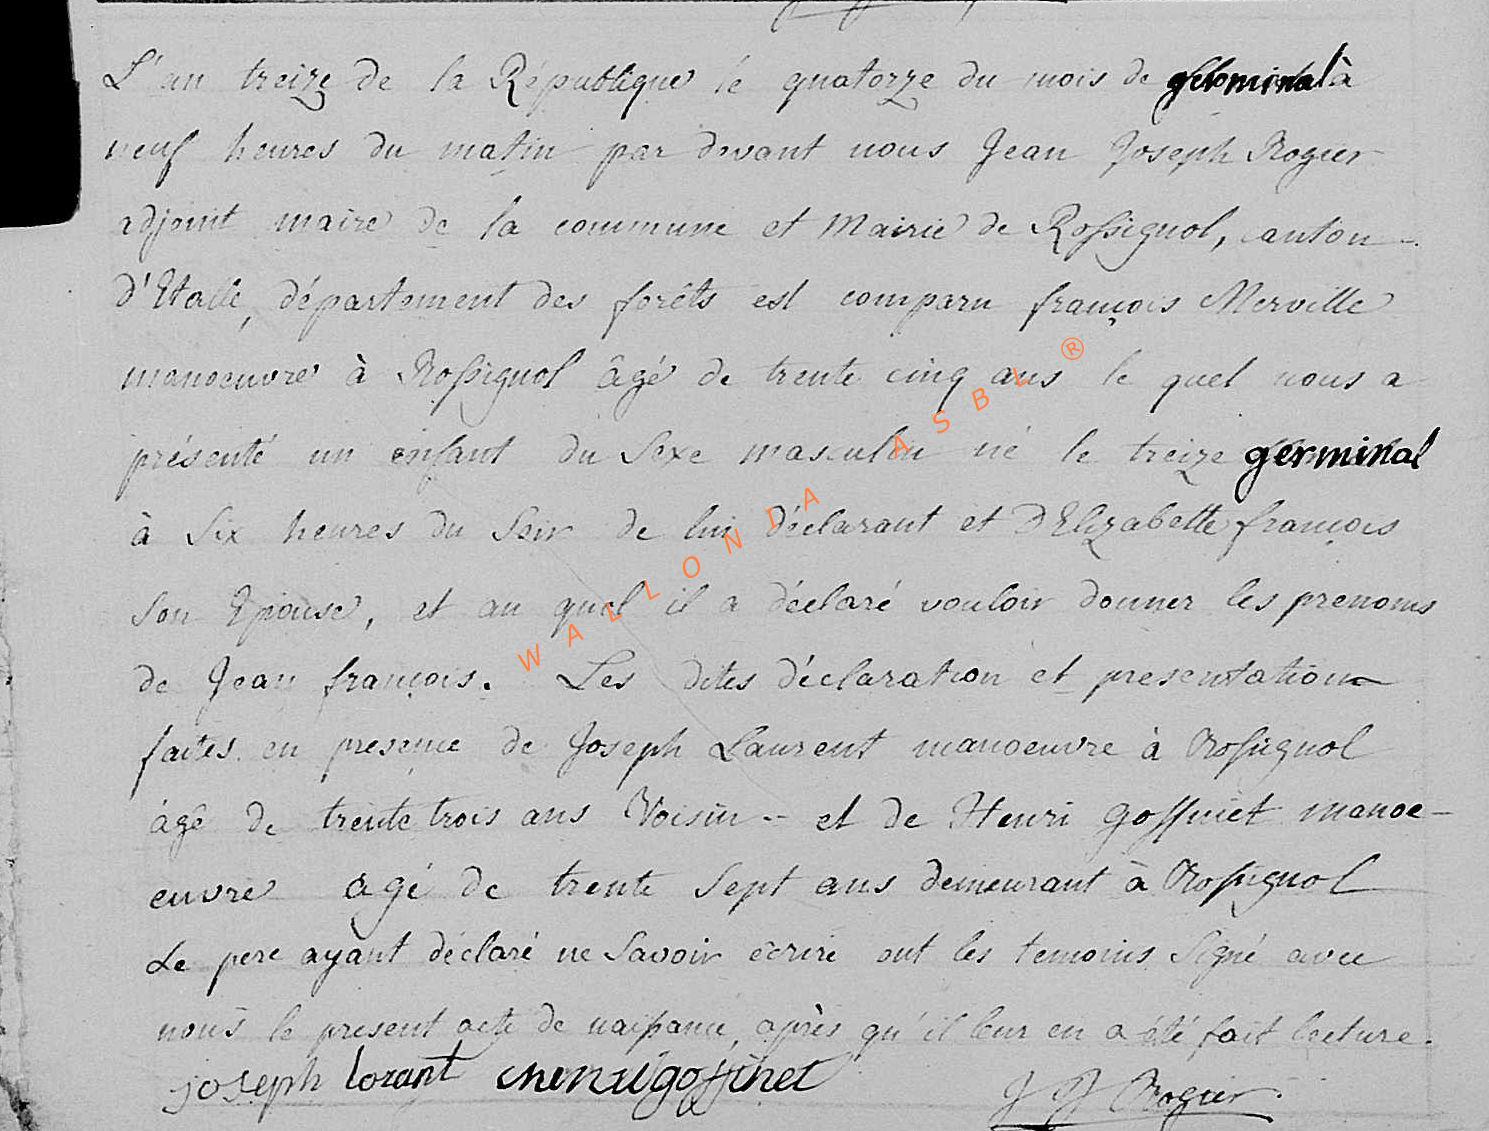 L'an treize de la République le quatorze du mois de germinal à
neuf heures du matin par devant nous Jean Joseph Rogier
adjoint maire de la commune et Mairie de Rossignol, canton
d'Etalle, département des forêts est comparu françois Merville
manoeuvre à Rossignol âgé de trente cinq ans le quel nous a
présenté un enfant du Sexe masculin né le treize germinal
à Six heures du Soir de lui déclarant et D'Elizabette françois
Son Epouse, et au quel il a déclaré vouloir donner les prenoms
de Jean françois. Les dites déclaration et presentation
faites en presence de Joseph Laurent manoeuvre à Rossignol
âgé de trente trois ans Voisin -- et de Henri goffinet manoe-
euvre agé de trente Sept ans demeurant à Rossignol
Le pere ayant déclaré ne Savoir ecrire ont les temoins Signé avec
nous le present acte de naissance, après qu'il leur en a été fait lecture.
joseph lorant henri goffinet J J Rogier
WALLONDA ASBL ®